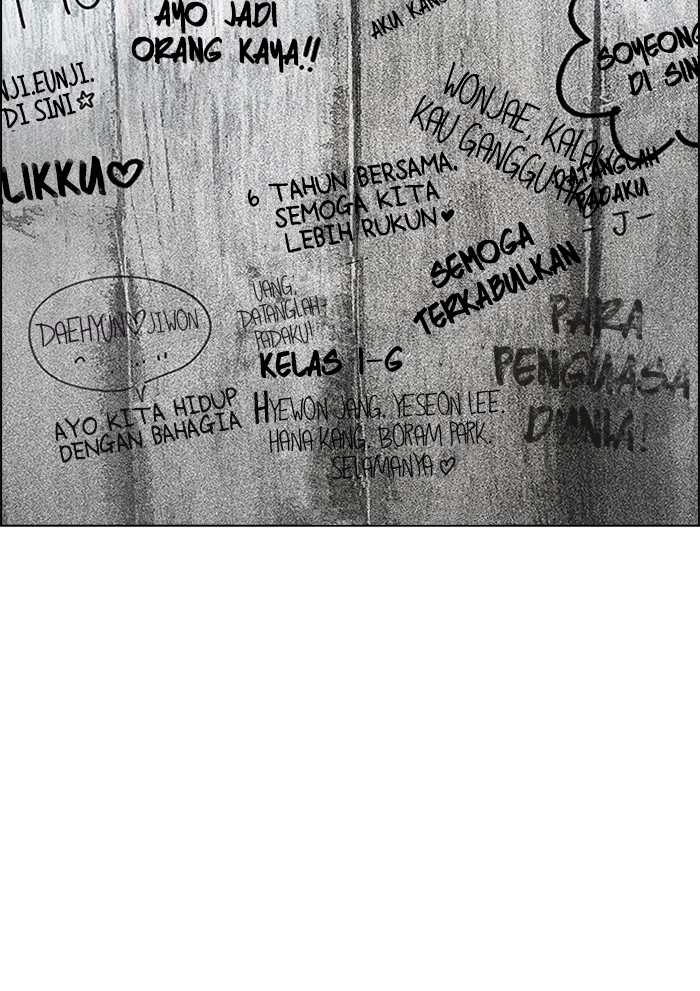 AYO JADI
ORANG KAYA!!
AKU
NJI.EUNJI.
DI SINI☆
SOYEONG
DI SINI
WONJAE, KALAU
KAU GANGGU
LIKKU♡
6 TAHUN BERSAMA.
SEMOGA KITA
LEBIH RUKUN♥
DATANGLAH
PADAKU
- J -
SEMOGA
TERKABULKAN
DAEHYUN♡JIWON
UANG,
DATANGLAH
PADAKU!
PARA
PENGUASA
DUNIA!
KELAS 1-6
HYEWON JANG. YESEON LEE.
HANA KANG. BORAM PARK.
SELAMANYA ♡
AYO KITA HIDUP
DENGAN BAHAGIA